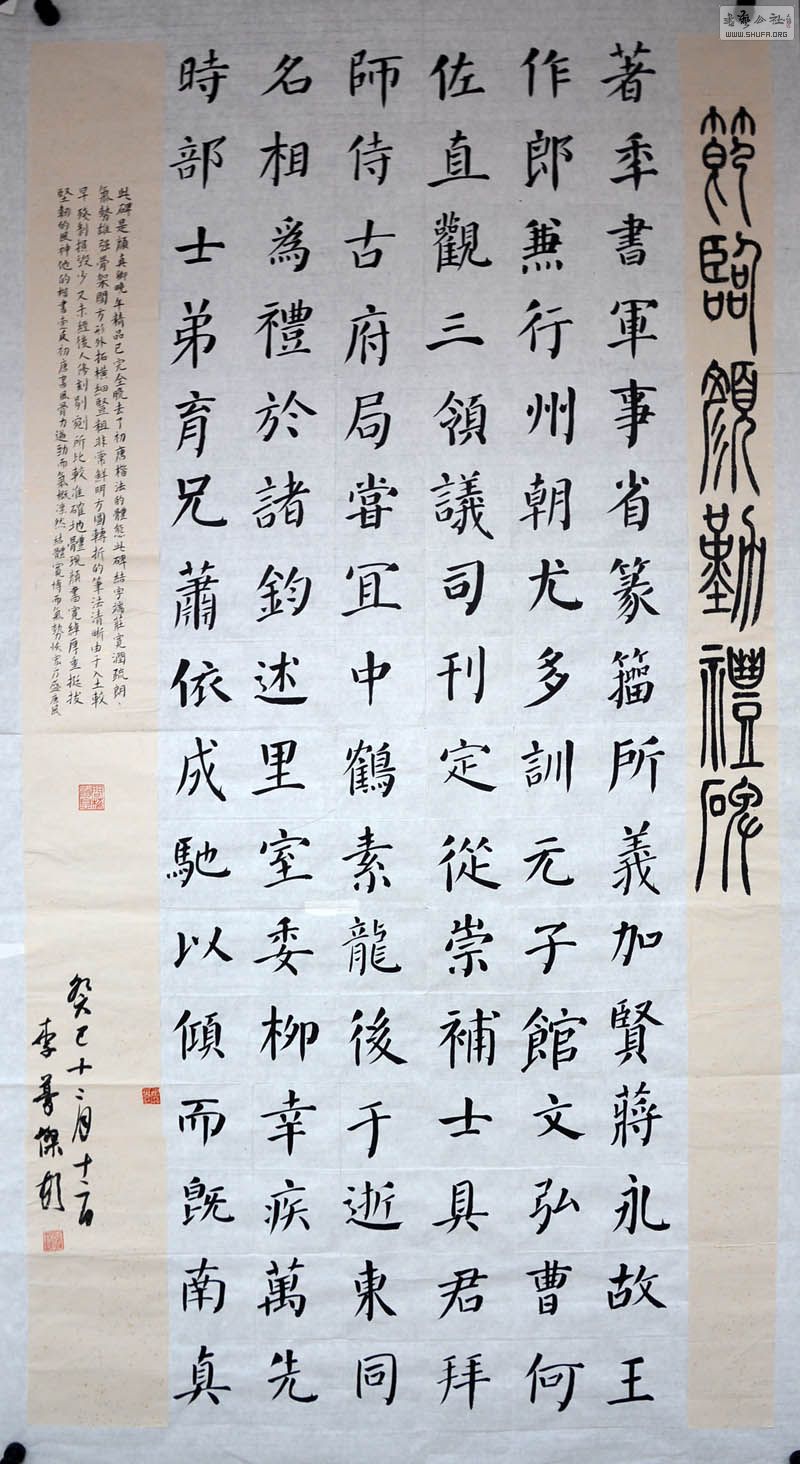 節臨顏勤禮碑
著秊書軍事省篆籀所義加賢蔣永故王
作郎兼行州朝尤多訓元子館文弘曹何
佐直觀三領議司刊定從崇補士具君拜
師侍古府局嘗宜中鶴素龍後于逝東同
名相為禮於諸鈞述里室委柳幸疾萬先
時部士弟育兄蕭依成馳以傾而旣南真
此碑是顏真卿晚年精品已完全脫去了初唐楷法的體態此碑結字端莊寬潤疏朗
氣勢雄强骨架開方形外拓橫細豎粗非常鮮明方圓轉折的筆法清晰由于入土較
早殘剝損毀少又未經後人修刻剔剜所比較准確地體現顏書寬綽厚重挺拔
堅韌的風神他的楷書壹反初唐書風骨力遒勁而氣概凜然結體寬博而氣勢恢宏
癸巳十二月十二日
李
書艺公社
WWW.SHUFA.ORG